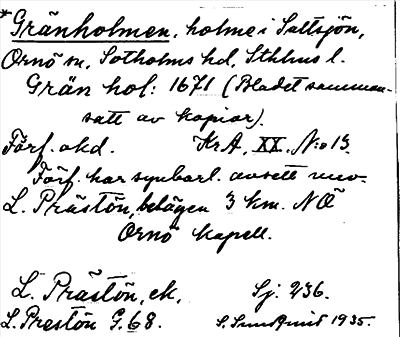 *Gränholmen, holme i Saltsjön,
Ornö sn, Sotholms hd, Sthlms l.
Grän hol: 1671 (Bladet samman-
satt av kopior).
Förf. okd. Kr.A, XX. N:o 13.
Förf. har synbarl. avsett nuv.
L. Prästön, belägen 3 km. NÖ
Ornö kapell.
L. Prästön, ek, Sj. 236.
L. Prestön G. 68. S. 1935.